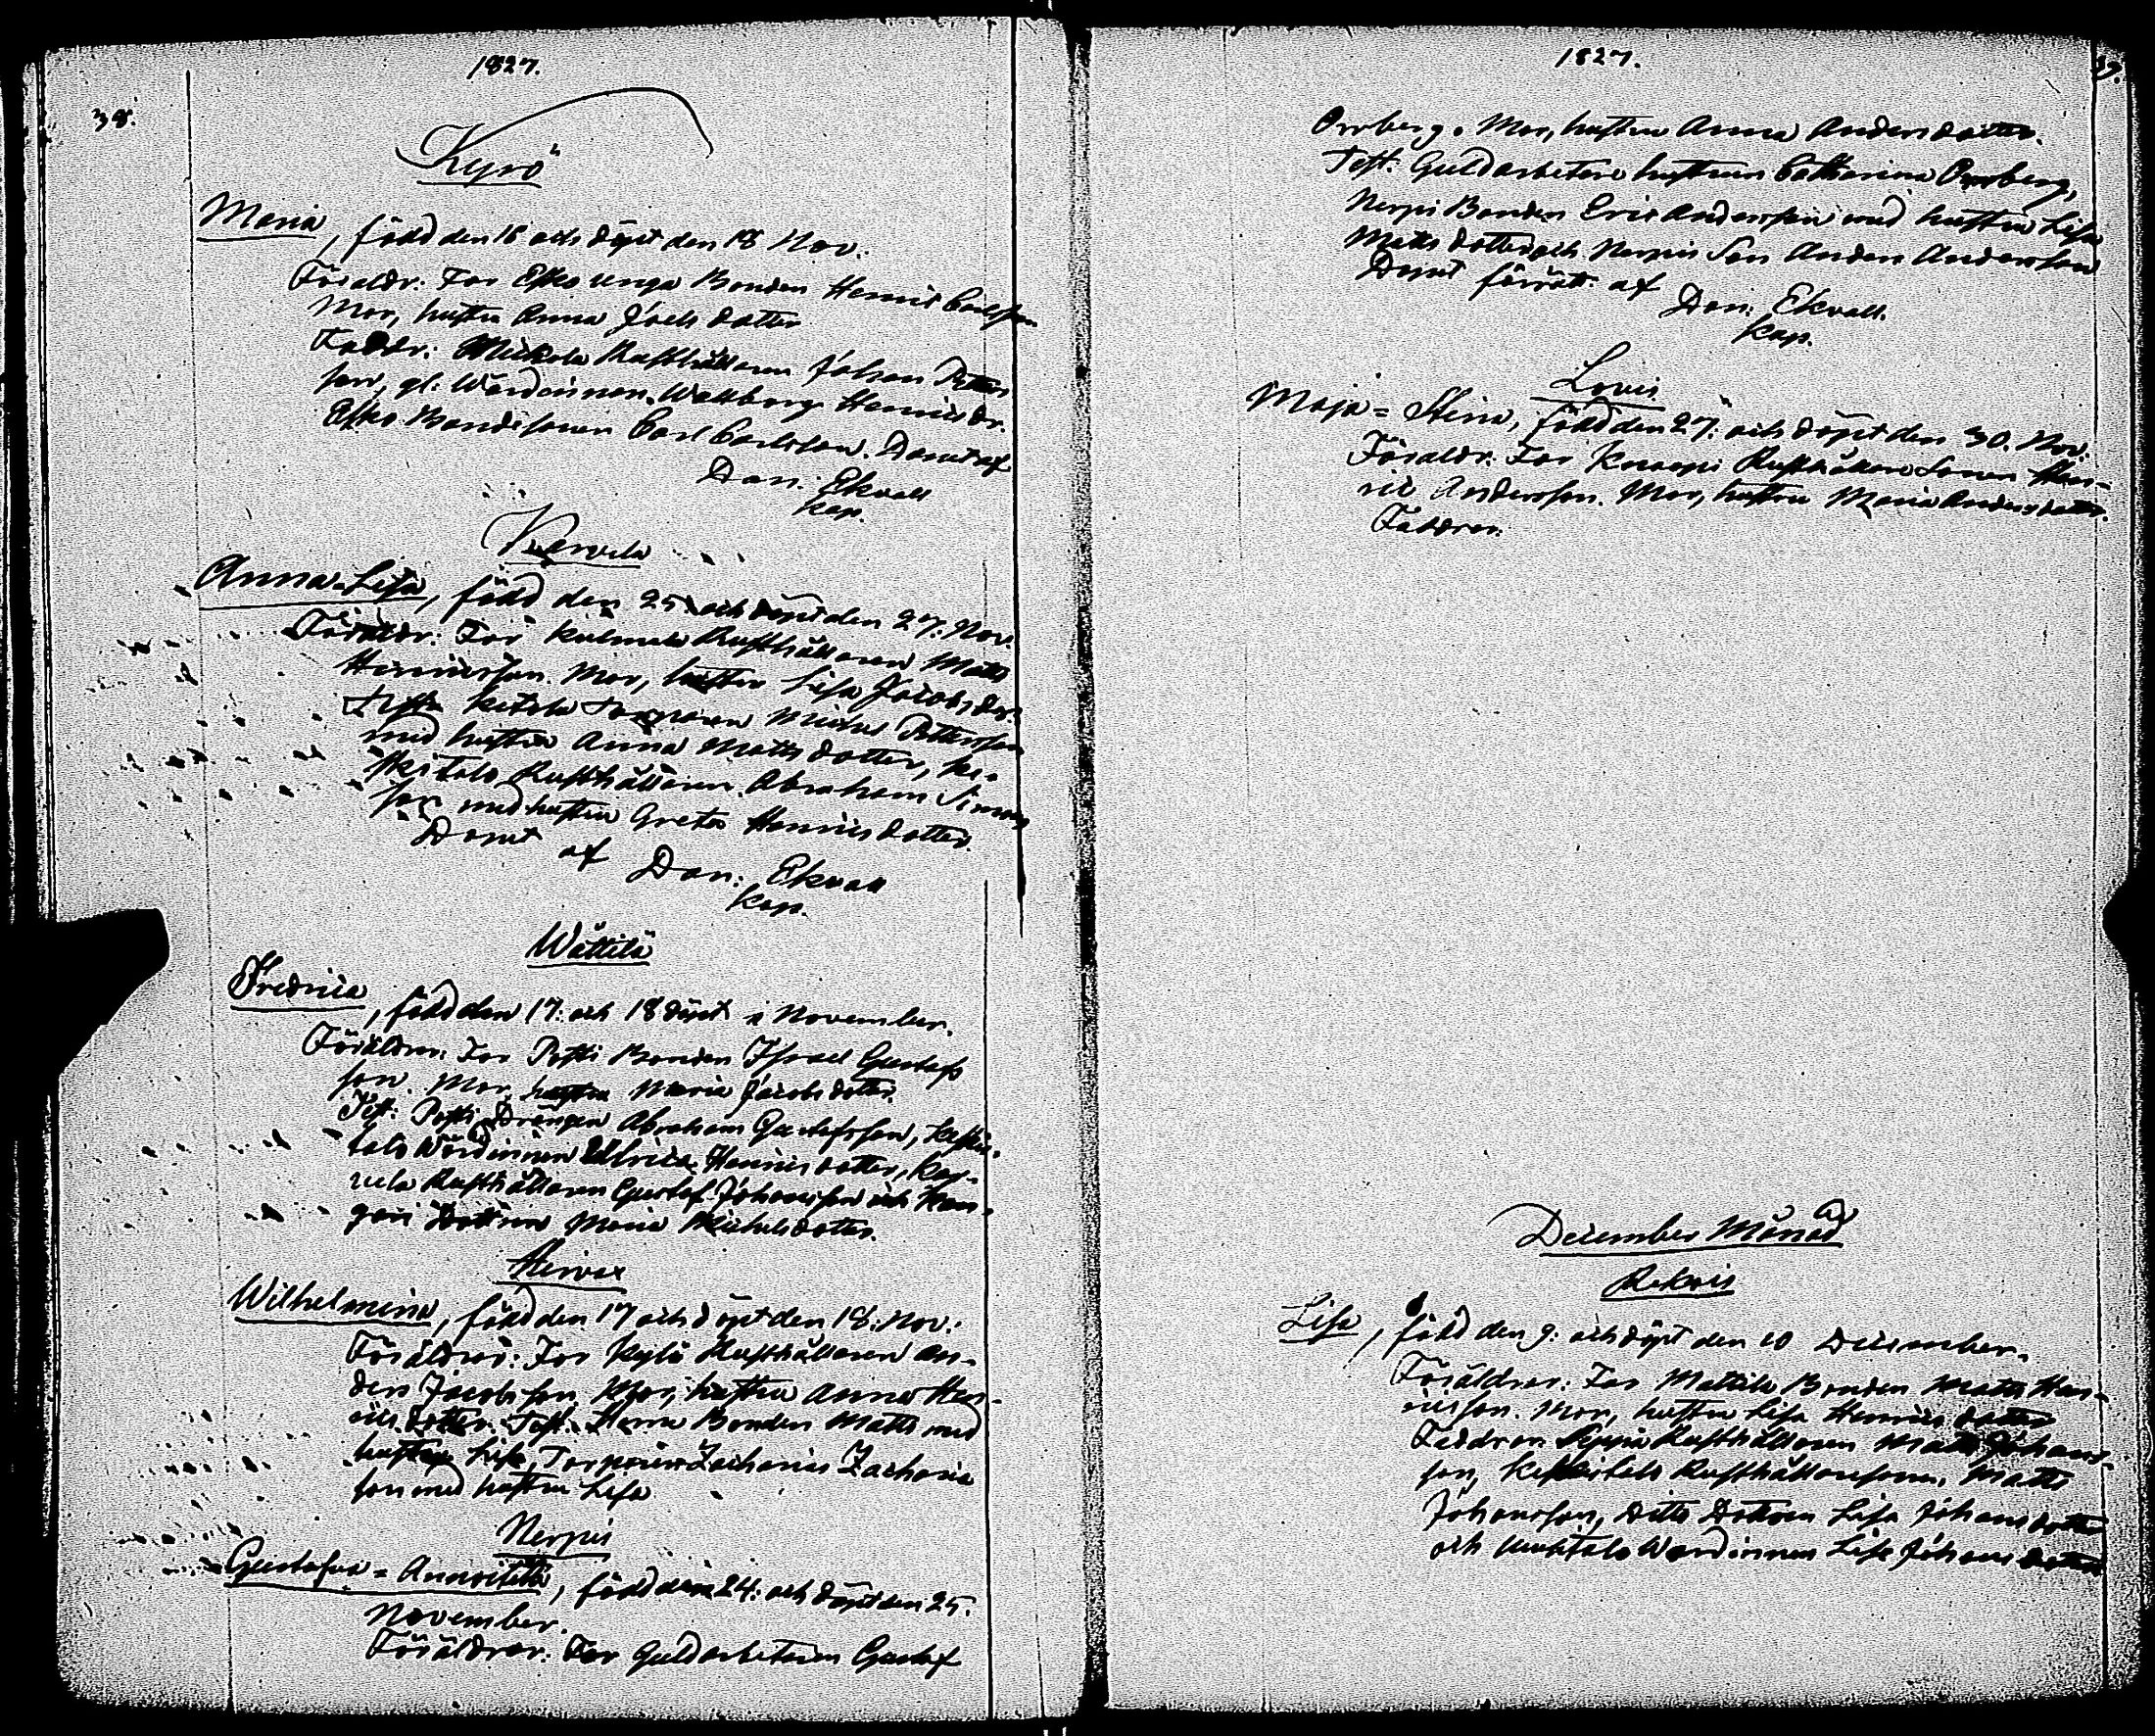 1827.
38.
Kyrö
Maria, född den 16 och döpt den 18 Nov.
Föräldr: Far Esko unga Bonden Henric Carlsson
Mor, hustru Anna Jöelsdotter
Faddr: Mickola Rusthållaren Johan Petters
son, gl: Wärdinnan Wallborg Henricsdr.
Esko Bondesonen Carl Carlsson. Döpt af
Dan: Ekvall
Kap.
Karvela
Anna Lisa, född den 25 och döpt den 27. Nov.
Föräldr: Far Rusthållaren Matts
Henricsson. Mor, hustru Lisa Jacobsdr.
Torparen Michel Pettersson
med hustru Anna Mattsdotter, Ke-
skitalo Rusthållaren Abraham Simons
son med hustru Greta Henricsdotter
Döpt af Dan: Ekvall
Kap.
Wättilä
Fredrica, född den 17. och 18 döpt i November.
Föräldrar: Far Posti Bonden Israel Gustafs
son. Mor, hustru Maria Jacobsdotter
Test: Posti Drängen Abraham Gustafsson, Keski-
talo Wärdinnan Ullrica Henricsdotter, Kar-
vela Rusthållaren Gustaf Johansson och Kan-
gari Dottren Maria Michelsdotter.
Hirvox
Wilhelmina, född den 17 och döpt den 18. Nov.
Föräldrar: Far Kylä Rusthållaren An-
ders Jacobsson, Mor, hustru Anna Hen-
rics dotter. Test. Bonden Matts med
hustru Lisa, Torparen Zacharias Zacharie
son med hustru Lisa.
Nerpis
Gustafva = Annvitta, född den 24. och döpt den 25.
November.
Föräldrar: Far Guldarbetaren Gustaf
1827.
39.
Orrberg. Mor, hustru Anna Andersdotter.
Test. Guldarbetare hustrun Catharina Orrberg,
Nerpi Bonden Eric Andersson med hustru Lisa
Mattsdotter och Nerpis Son Anders Andersson
Döpet förrätt: af Dan: Ekvall.
Kap.
Lovis
Maja = Stina, född den 27. och döpt den 30. Nov.
Föräldr: Far Knaapi Rusthållare Sonen Hen-
ric Andersson. Mor, hustru Maria Andersdotter.
Faddrar.
December Månad
Rekois
Lisa, född den 9. och döpt den 10 December.
Föräldrar: Far Mattila Bonden Matts Hen-
ricsson. Mor, hustru Lisa Henricsdotter
Faddrar Seppä Rusthållaren Matts Johans-
son, Keskitalo Rusthållaresonen Matts
Johansson, ditto Dottren Lisa Johansdotter
och Wärdinnan Lisa Johansdotter